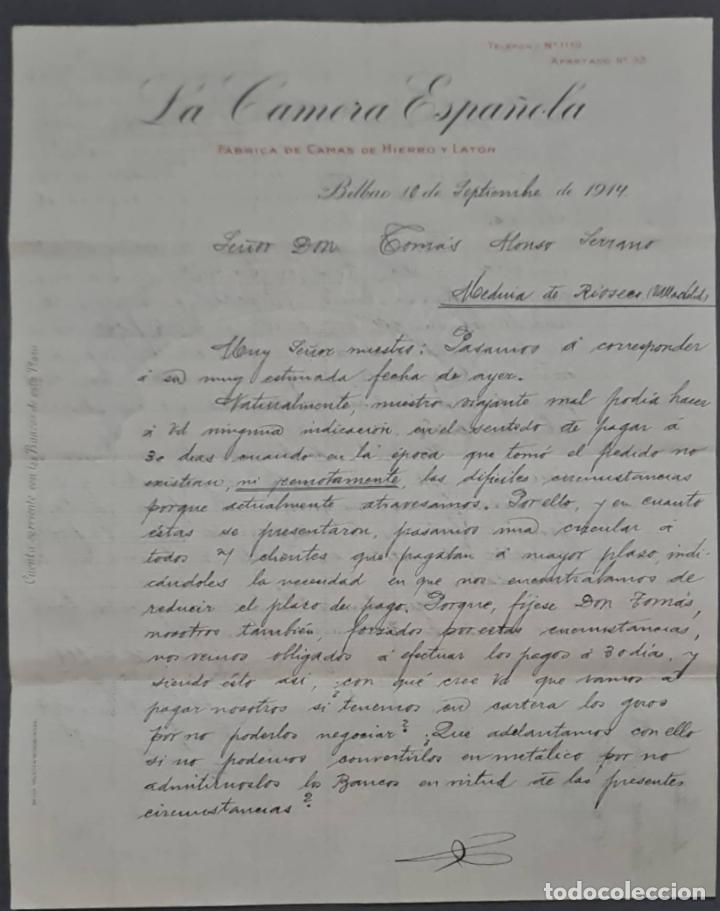 TELEFONO Nº 1119
APARTADO Nº 33
La Camera Española
FÁBRICA DE CAMAS DE HIERRO Y LATÓN
Bilbao 10 de Septiembre de 1914
Señor Don Tomás Alonso Serrano
Medina de Rioseco (Valladolid)
Muy Señor nuestro: Pasamos á corresponder
á su muy estimada fecha de ayer.
Naturalmente, nuestro viajante mal podía hacer
á Vd ninguna indicación en el sentido de pagar á
30 días cuando en la época que tomó el pedido no
existían, ni remotamente, las difíciles circunstancias
porque actualmente atravesamos. Por ello, y en cuanto
éstas se presentaron, pasamos una circular á
todos clientes que pagaban á mayor plazo, indi-
cándoles la necesidad en que nos encontrábamos de
reducir el plazo de pago. Porque, fíjese Don Tomás,
nosotros también, forzados por estas circunstancias,
nos vemos obligados á efectuar los pagos á 30 días, y
siendo ésto así, ¿con qué cree Vd que vamos á
pagar nosotros si tenemos en cartera los giros
por no poderlos negociar? ¿Qué adelantamos con ello
si no podemos convertirlos en metálico, por no
admitírnoslos los Bancos en virtud de las presentes
circunstancias?
Cuenta corriente con los Bancos de esta Plaza
todocoleccion